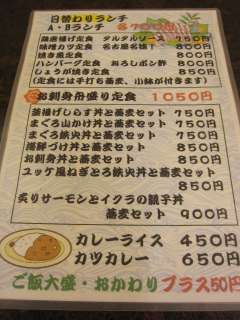 日替わりランチ
A・Bランチ 各750円
鶏唐揚げ定食 タルタルソース 750円
味噌カツ定食 名古屋名物! 800円
焼き魚定食 800円
ハンバーグ定食 おろしポン酢 800円
しょうが焼き定食 850円
(定食には手打ち蕎麦、小鉢が付きます)
お刺身舟盛り定食 1050円
釜揚げしらす丼と蕎麦セット 750円
まぐろ山かけ丼と蕎麦セット 750円
まぐろ鉄火丼と蕎麦セット 850円
海鮮づけ丼と蕎麦セット 850円
お刺身丼と蕎麦セット 850円
ユッケ風ねぎとろ鉄火丼と蕎麦セット
850円
炙りサーモンとイクラの親子丼
蕎麦セット 900円
カレーライス 450円
カツカレー 650円
ご飯大盛・おかわり プラス50円